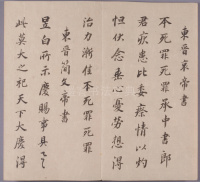 東晉哀帝書
不死罪死罪承中書郎
君疾患此委瘵情以灼
怛伏念垂心憂勞想得
治力漸佳不死罪死罪
東晉簡文帝書
昱白所示慶賜事具之
此莫大之祀天下大慶得